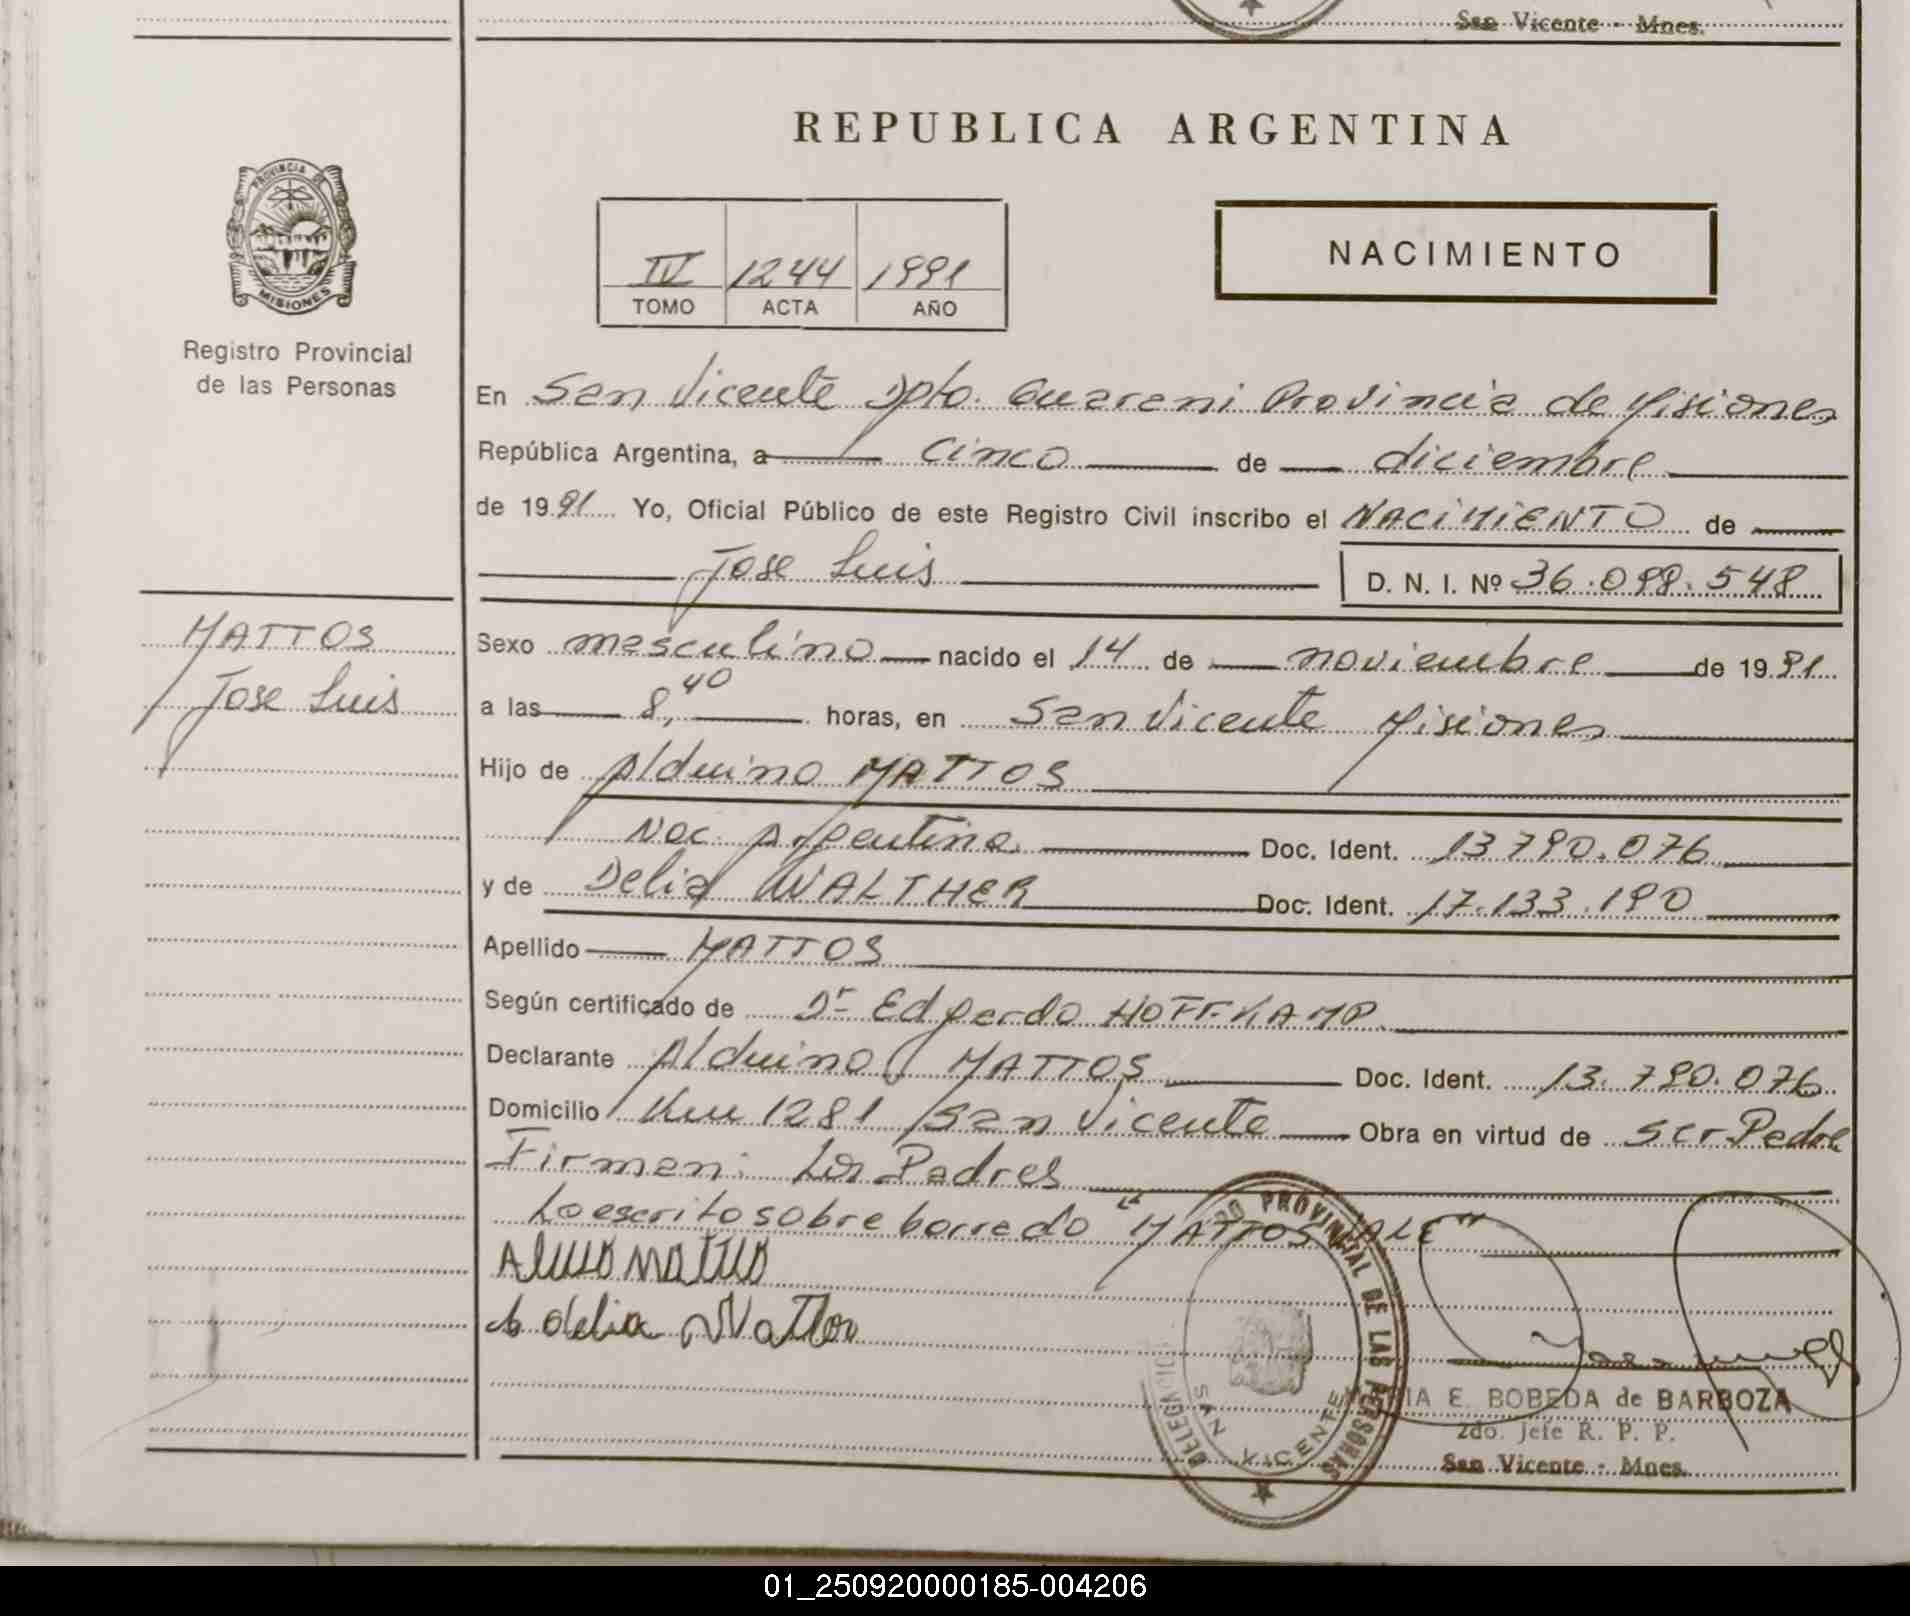 San Vicente - Mnes.
REPUBLICA ARGENTINA
PROVINCIA DE
MISIONES
Registro Provincial
de las Personas
IV 1244 1991
TOMO ACTA AÑO
NACIMIENTO
En San Vicente Dpto. Guarani Provincia de Misiones
República Argentina, a cinco de diciembre
de 1991 Yo, Oficial Público de este Registro Civil inscribo el NACIMIENTO de
Jose Luis D. N. I. Nº 36.098.548
MATTOS
Jose Luis
Sexo masculino nacido el 14 de noviembre de 1991
a las 8,40 horas, en San Vicente Misiones
Hijo de Alduino MATTOS
Nac. Argentina Doc. Ident. 13.790.076
y de Delia WALTHER Doc. Ident. 17.133.190
Apellido MATTOS
Según certificado de Dr Edgardo HOFFKAMP
Declarante Alduino MATTOS Doc. Ident. 13.790.076
Domicilio Km 1281 San Vicente Obra en virtud de ser Padre
Firman: Los Padres
Lo escrito sobre borrado "MATTOS VALE"
delia
PROVINCIAL DE LAS PERSONAS
DELEGACION
SAN VICENTE
MARIA E. BOBEDA de BARBOZA
2do. Jefe R. P. P.
San Vicente - Mnes.
01_250920000185-004206